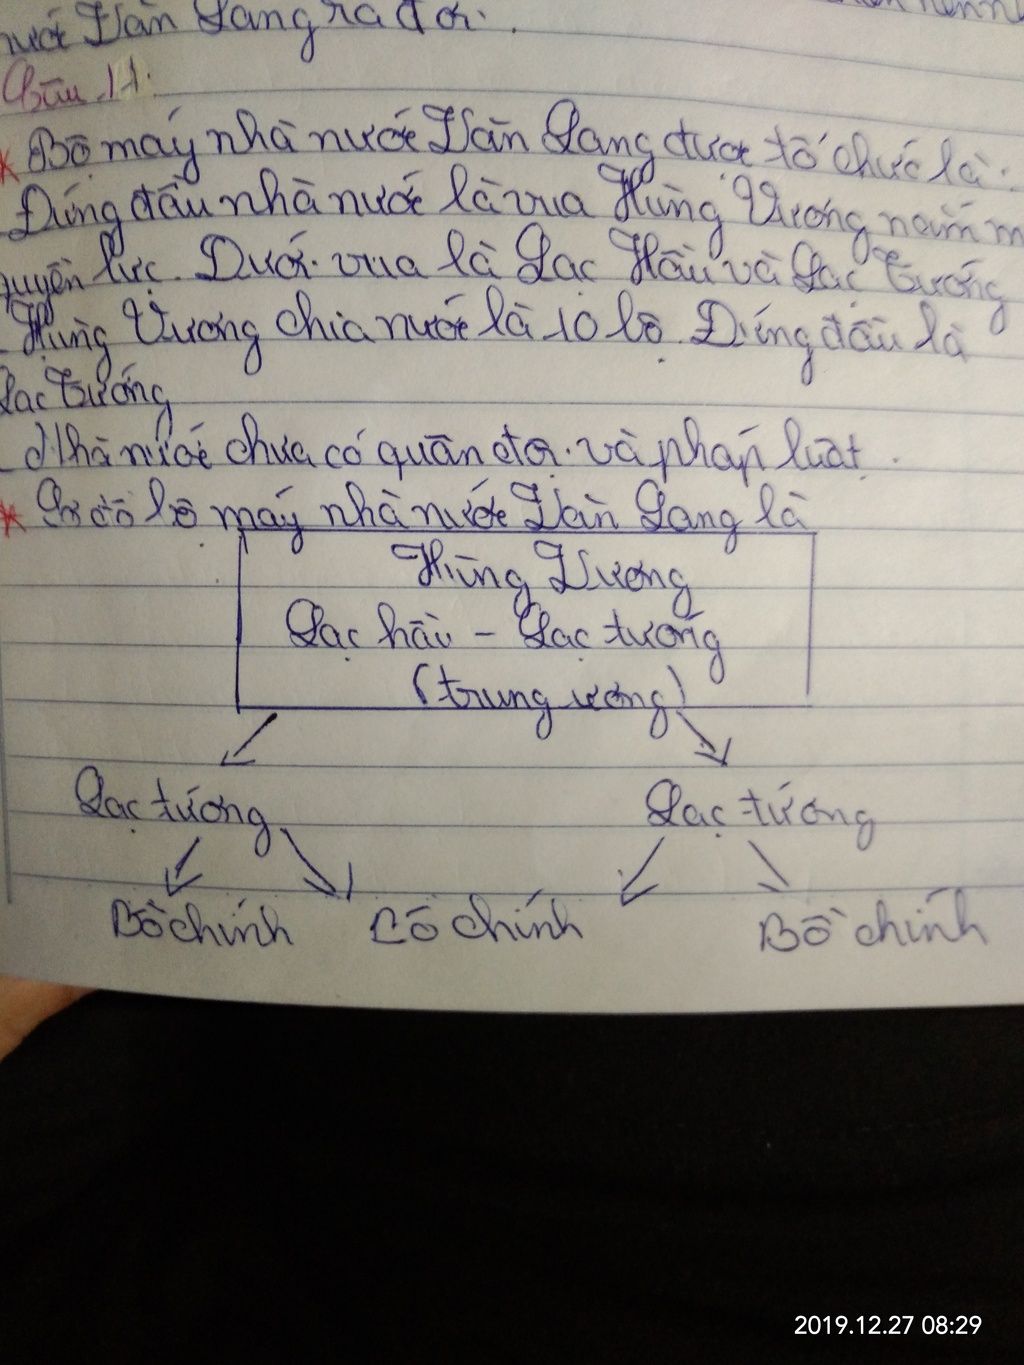 nước Văn Lang ra đời.
Câu 11:
* Bộ máy nhà nước Văn Lang được tổ chức là:
Đứng đầu nhà nước là vua Hùng Vương nắm m
quyền lực. Dưới vua là Lạc Hầu và Lạc tướng
Hùng Vương chia nước là 10 bộ. Đứng đầu là
Lạc tướng
Nhà nước chưa có quân đội và pháp luật.
* Sơ đồ bộ máy nhà nước Văn Lang là
Hùng Vương
Lạc hầu - Lạc tướng
(trung ương)
Lạc tướng Lạc tướng
Bồ chính Bồ chính Bồ chính
2019.12.27 08:29